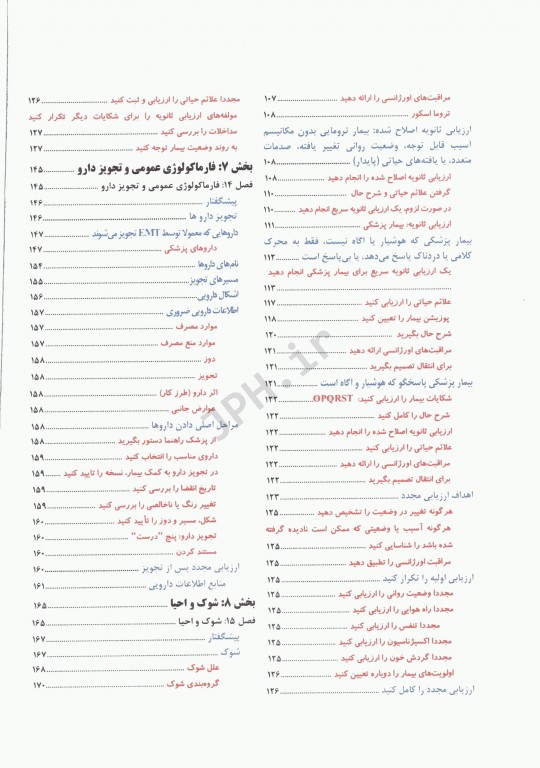 مراقبت‌های اورژانسی را ارائه دهید ............ ۱۰۷
تروما اسکور ............ ۱۰۸
ارزیابی ثانویه اصلاح شده: بیمار ترومایی بدون مکانیسم
آسیب قابل توجه، وضعیت روانی تغییر یافته، صدمات
متعدد، یا یافته‌های حیاتی (پایدار) ............ ۱۰۸
ارزیابی ثانویه اصلاح شده را انجام دهید ............ ۱۰۸
گرفتن علائم حیاتی و شرح حال ............ ۱۱۰
در صورت لزوم، یک ارزیابی ثانویه سریع انجام دهید ............ ۱۱۰
ارزیابی ثانویه: بیمار پزشکی ............ ۱۱۱
بیمار پزشکی که هوشیار یا آگاه نیست، فقط به محرک
کلامی یا دردناک پاسخ می‌دهد، یا بی‌پاسخ است ............ ۱۱۲
یک ارزیابی ثانویه سریع برای بیمار پزشکی انجام دهید
............ ۱۱۳
علائم حیاتی را ارزیابی کنید ............ ۱۱۷
پوزیشن بیمار را تعیین کنید ............ ۱۱۸
شرح حال بگیرید ............ ۱۲۰
مراقبت‌های اورژانسی ارائه دهید ............ ۱۲۱
برای انتقال تصمیم بگیرید ............ ۱۲۱
بیمار پزشکی پاسخگو که هوشیار و آگاه است ............ ۱۲۱
شکایات بیمار را ارزیابی کنید: OPQRST ............ ۱۲۲
شرح حال را کامل کنید ............ ۱۲۲
ارزیابی ثانویه اصلاح شده را انجام دهید ............ ۱۲۲
علائم حیاتی را ارزیابی کنید ............ ۱۲۲
مراقبت‌های اورژانسی را ارائه دهید ............ ۱۲۲
برای انتقال تصمیم بگیرید ............ ۱۲۲
اهداف ارزیابی مجدد ............ ۱۲۳
هرگونه تغییر در وضعیت را تشخیص دهید ............ ۱۲۵
هرگونه آسیب یا وضعیتی که ممکن است نادیده گرفته
شده باشد را شناسایی کنید ............ ۱۲۵
مراقبت اورژانسی را تطبیق دهید ............ ۱۲۵
ارزیابی اولیه را تکرار کنید ............ ۱۲۵
مجددا وضعیت روانی را ارزیابی کنید ............ ۱۲۵
مجددا راه هوایی را ارزیابی کنید ............ ۱۲۵
مجددا تنفس را ارزیابی کنید ............ ۱۲۵
مجددا اکسیژناسیون را ارزیابی کنید ............ ۱۲۵
مجددا گردش خون را ارزیابی کنید ............ ۱۲۵
اولویت‌های بیمار را دوباره تعیین کنید ............ ۱۲۶
ارزیابی مجدد را کامل کنید ............ ۱۲۶
مجددا علائم حیاتی را ارزیابی و ثبت کنید ............ ۱۲۶
مولفه‌های ارزیابی ثانویه را برای شکایات دیگر تکرار کنید
مداخلات را بررسی کنید ............ ۱۲۷
به روند وضعیت بیمار توجه کنید ............ ۱۲۷
بخش ۷: فارماکولوژی عمومی و تجویز دارو ............ ۱۴۵
فصل ۱۴: فارماکولوژی عمومی و تجویز دارو ............ ۱۴۵
پیشگفتار ............ ۱۴۶
تجویز دارو ها ............ ۱۴۶
داروهایی که معمولا توسط EMT تجویز می‌شوند ............ ۱۴۷
داروهای پزشکی ............ ۱۴۷
نام‌های داروها ............ ۱۵۴
مسیرهای تجویز ............ ۱۵۵
اشکال دارویی ............ ۱۵۶
اطلاعات دارویی ضروری ............ ۱۵۷
موارد مصرف ............ ۱۵۷
موارد منع مصرف ............ ۱۵۷
دوز ............ ۱۵۸
تجویز ............ ۱۵۸
اثر دارو (طرز کار) ............ ۱۵۸
عوارض جانبی ............ ۱۵۸
مراحل اصلی دادن داروها ............ ۱۵۸
از پزشک راهنما دستور بگیرید ............ ۱۵۸
داروی مناسب را انتخاب کنید ............ ۱۵۹
در تجویز دارو به کمک بیمار، نسخه را تایید کنید ............ ۱۵۹
تاریخ انقضا را بررسی کنید ............ ۱۵۹
تغییر رنگ یا ناخالصی را بررسی کنید ............ ۱۵۹
شکل، مسیر و دوز را تأیید کنید ............ ۱۶۰
تجویز دارو: پنج "درست" ............ ۱۶۰
مستند کردن ............ ۱۶۰
ارزیابی مجدد پس از تجویز ............ ۱۶۰
منابع اطلاعات دارویی ............ ۱۶۱
بخش ۸: شوک و احیا ............ ۱۶۵
فصل ۱۵: شوک و احیا ............ ۱۶۵
پیشگفتار ............ ۱۶۷
شوک ............ ۱۶۷
علل شوک ............ ۱۶۸
گروه‌بندی شوک ............ ۱۷۰
JPH.ir